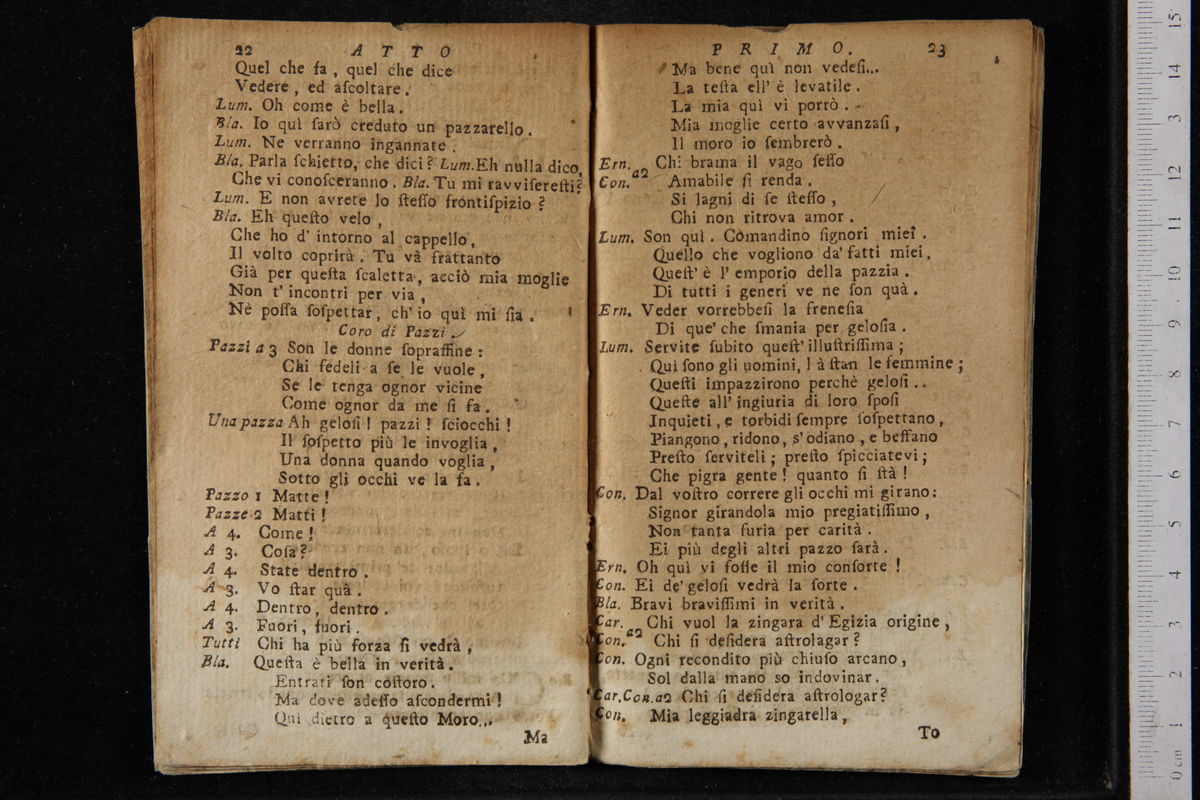 22 ATTO
Quel che fa, quel che dice
Vedere, ed aſcoltare.
Lum. Oh come è bella.
Bla. Io quì ſarò creduto un pazzarello.
Lum. Ne verranno ingannate.
Bla. Parla ſchietto, che dici? Lum.Eh nulla dico,
Che vi conoſceranno. Bla. Tu mi ravviſereſti?
Lum. E non avrete lo ſteſſo frontiſpizio?
Bla. Eh queſto velo,
Che ho d' intorno al cappello,
Il volto coprirà. Tu và frattanto
Già per queſta ſcaletta, acciò mia moglie
Non t' incontri per via,
Nè poſſa ſoſpettar, ch' io quì mi ſia.
Coro di Pazzi.
Pazzi a 3 Son le donne ſopraffine:
Chi fedeli a ſe le vuole,
Se le tenga ognor vicine
Come ognor da me ſi fa.
Una pazza Ah geloſi! pazzi! ſciocchi!
Il ſoſpetto più le invoglia,
Una donna quando voglia,
Sotto gli occhi ve la fa.
Pazzo 1 Matte!
Pazze 2 Matti!
A 4. Come!
A 3. Coſa?
A 4. State dentro.
A 3. Vo ſtar quà.
A 4. Dentro, dentro.
A 3. Fuori, fuori.
Tutti Chi ha più forza ſi vedrà,
Bla. Queſta è bella in verità.
Entrati ſon coſtoro.
Ma dove adeſſo aſcondermi!
Quì dietro a queſto Moro...
Ma
PRIMO. 23
Ma bene quì non vedeſi...
La teſta ell' è levatile.
La mia quì vi porrò.
Mia moglie certo avvanzaſi,
Il moro io ſembrerò.
Ern. Chi brama il vago ſeſſo
Con. a2 Amabile ſi renda.
Si lagni di ſe ſteſſo,
Chi non ritrova amor.
Lum. Son quì. Comandino ſignori miei.
Quello che vogliono da' fatti miei.
Queſt' è l' emporio della pazzia.
Di tutti i generi ve ne ſon quà.
Ern. Veder vorrebbeſi la freneſia
Di que' che ſmania per geloſia.
Lum. Servite ſubito queſt' illuſtriſſima;
Quì ſono gli uomini, là ſtan le femmine;
Queſti impazzirono perchè geloſi..
Queſte all' ingiuria di loro ſpoſi
Inquieti, e torbidi ſempre ſoſpettano,
Piangono, ridono, s' odiano, e beffano
Preſto ſerviteli; preſto ſpicciatevi;
Che pigra gente! quanto ſi ſtà!
Con. Dal voſtro correre gli occhi mi girano:
Signor girandola mio pregiatiſſimo,
Non tanta furia per carità.
Ei più degli altri pazzo ſarà.
Ern. Oh quì vi foſſe il mio conſorte!
Con. Ei de' geloſi vedrà la ſorte.
Bla. Bravi braviſſimi in verità.
Car. Chi vuol la zingara d' Egizia origine,
Con. a2 Chi ſi deſidera aſtrolagar?
Con. Ogni recondito più chiuſo arcano,
Sol dalla mano so indovinar.
Car.Con.a2 Chi ſi deſidera aſtrologar?
Con. Mia leggiadra zingarella,
To
0 cm 1 2 3 4 5 6 7 8 9 10 11 12 13 14 15